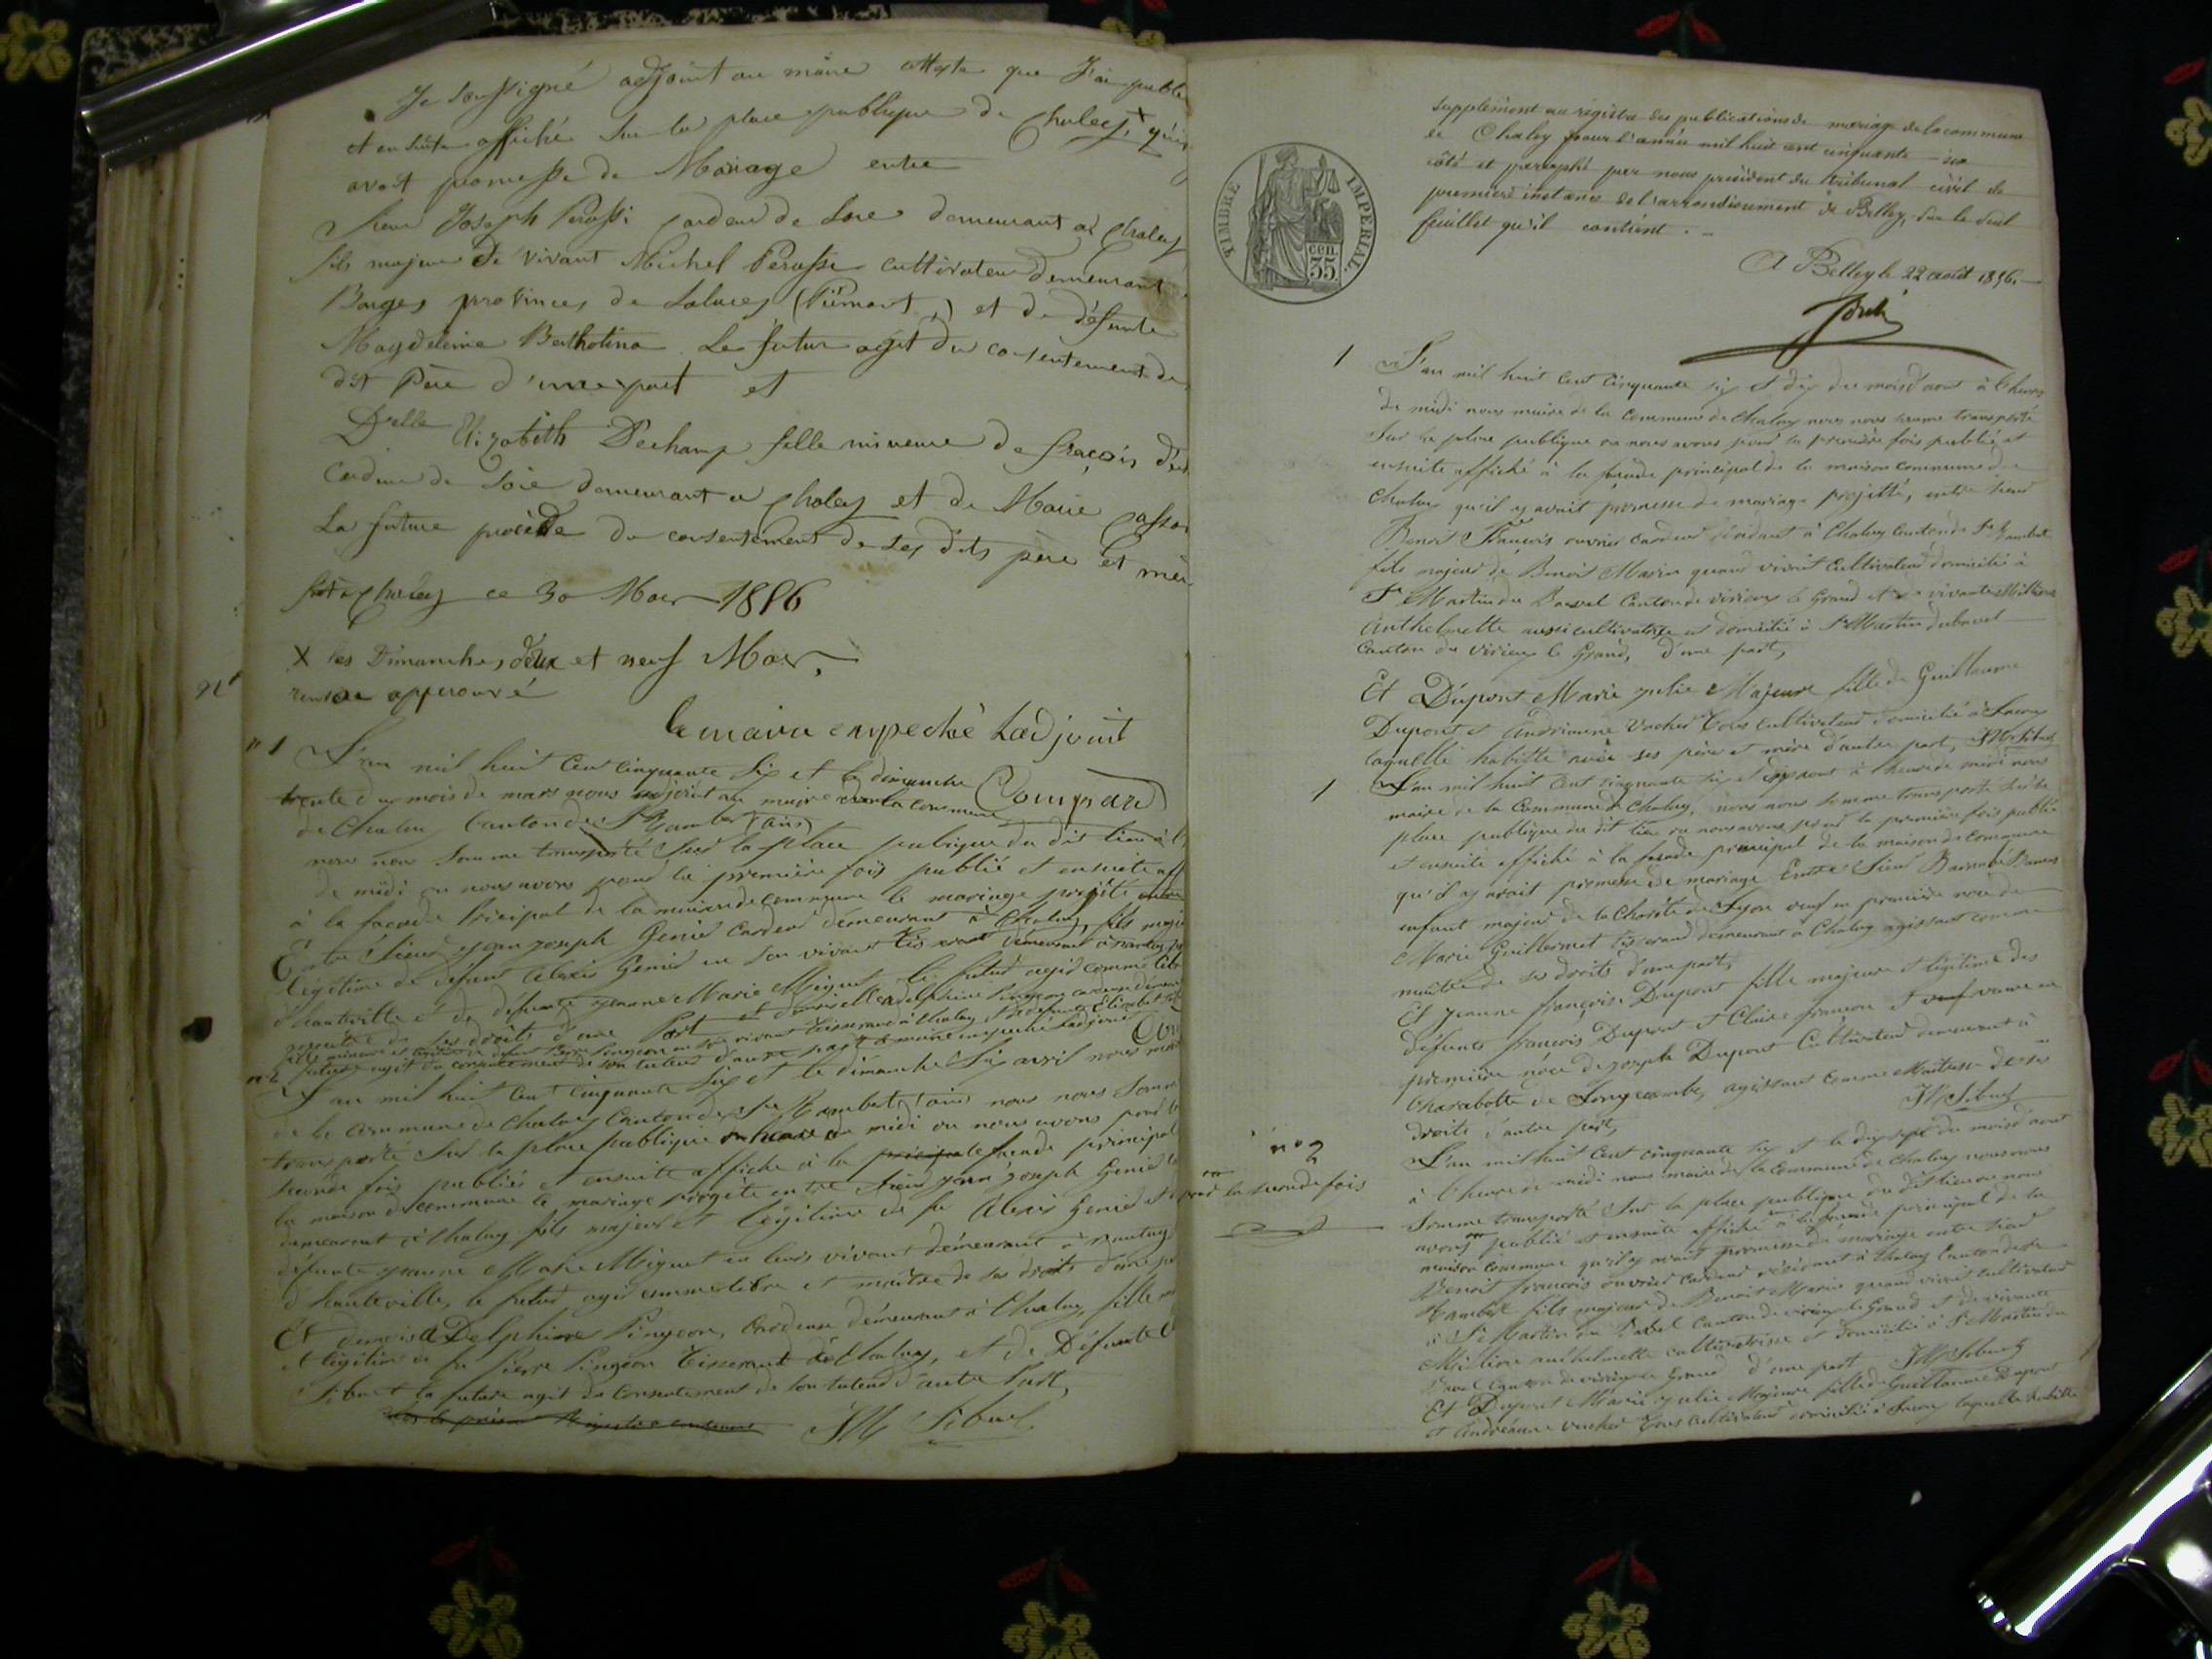 Je soussigné adjoint au maire atteste que J'ai publié
et en suite affiché sur la place publique de Chaley X qu'il
avait promesse de Mariage entre
Sieur Joseph Perassi cardeur de Soie demeurant à Chaley
fils majeur de vivant Michel Perassi cultivateur demeurant
Barges province de Saluces (Piémont) et de défunte
Magdeleine Berthotina Le futur agit du consentement de
dit Père d'une part et
Delle Elizabeth Dechamp fille mineure de fracois
Cardeur de Soie demeurant a Chaley et de Marie
La future procède du consentement de ses dits père et mère
fait à Chaley ce 30 Mars 1856
X les Dimanches deux et neuf Mars
renvoi approuvé
le maire empeché Ladjoint
n° 1 L'an mil huit Cent Cinquante Six et le dimanche
trente du mois de mars nous adjoint au maire de la Commune
de Chaley Canton de St Rambert (ain)
nous nous somme transporté Sur la place publique du dit lieu à l
de midi ou nous avons pour la première fois publié et ensuite aff
à la façade Pricipal de la maison de commune le mariage projité entre
Entre Sieur jean joseph Genier Cardeur demeurant à Chaley, fils maje
légitime de défunt Alexis Genier en son vivant demeurant à nantuy
d'hauteville et de defunte jeanne Marie Miguet le futur agis comme libre
maitre de ses droits d'une Part et demoiselle adelphine Pingeon cardeuse
fille mineure et légitime de défunt Pierre Pingeon en son vivant Tisserand à Chaley et de défunte Elizabet
future agit du consentement de son tuteur d'autre part le maire empeché Ladjoint
n° 2 L'an mil huit Cent Cinquante Six et le dimanche Six avril nous maire
de la Commune de Chaley Canton de St Rambert (ain) nous nous Somme
transporté Sur la place publique heure de midi ou nous avons pour la
seconde fois publiés et ensuite affiche à la façade principal
la maison de commune le mariage projété entre Sieur jean joseph Genier
demeurant à Chaley fils majeur et légitime de fu Alexis Genier et
défunte jeanne Marie Miguet en leurs vivant démeurant à nantuy
d'hauteville, le futur agis comme libre et maitre de ses droits d'une part
Et demoisel Delphine Pingeon, Cardeuse démeurant à Chaley, fille
et légitime de fu Pierre Pingeon Tisserant à Chaley, et de Défunte
Sibuet la future agit du Consentement de son tuteur d'autre Part,
JM Sibuet
TIMBRE IMPERIAL
35 cen.
supplément au registre des publications de mariage de la commune
de Chaley pour l'année mil huit cent cinquante-six
côté et paraphé par nous président du tribunal civil de
première instance de l'arrondissement de Belley, sur le seul
feuillet qu'il contient.
A Belley le 22 août 1856.
1 L'an mil huit Cent Cinquante six et dix du mois d'aout à l'heure
de midi nous maire de la Commune de Chaley nous nous somme transporté
Sur la place publique ou nous avons pour la première fois publié et
ensuite affiché à la façade principal de la maison commune de
Chaley qu'il y avait promesse de mariage projetté, entre Sieur
Benoit François ouvrier cardeur résidant à Chaley Canton de St Rambert
fils majeur de Benoit Marin quand vivait Cultivateur domicilié à
St Martin du Bavel Canton de virieux le Grand et de vivante Millione
Anthelmette aussi cultivatrice et domicilié à St Martin du bavel
Canton de virieux le Grand, d'une part,
Et Dupont Marie julie Majeure fille de Guillaume
Dupont et Andrianne Vucher Tous Cultivateur domicilié à
laquelle habitte avec ses père et mère d'autre part, JM Sibuet
1 L'an mil huit Cent cinquante six et dix aout à l'heure de midi nous
maire de la Commune de Chaley, nous nous somme transporté sur la
place publique du dit lieu ou nous avons pour la première fois publié
et ensuite affiché à la façade principal de la maison de Commune
qu'il y avait promesse de mariage Entre Sieur Barnabé
enfant majeur de la Charité de Lyon veuf en première noce de
Marie Guillermet Tisserand démeurant à Chaley agissant comme
maitre de ses droits d'une part,
Et jeanne françoise Dupont fille majeure et légitime des
défunts françois Dupont et Claire françon et veuve en
première noce de joseph Dupont Cultivateur demeurant à
Charabotte de Longecombe, agissant comme Maitresse de ses
droits d'autre part, JM Sibuet
n° 2
pour la seconde fois
L'an mil huit Cent cinquante six et le dix sept du mois d'aout
à l'heure de midi nous maire de la Commune de Chaley nous nous
Somme transporté Sur la place publique du dit lieu ou nous
avons publié et ensuite affiché à la façade principal de la
maison commune qu'il y avait promesse de mariage entre Sieur
Benoit françois ouvrier Cardeur résidant à Chaley Canton de St
Rambert fils majeur de Benoit Marin quand vivait cultivateur
à St Martin du Bavel Canton de virieux le Grand et de vivante
Millione anthelmette cultivatrice et domicilié à St Martin du
Bavel Canton de virieux le Grand d'une part JM Sibuet
Et Dupont Marie julie Majeure fille de Guillaume Dupont
et Andrianne vucher Tous cultivateur domicilié à laquelle habitte